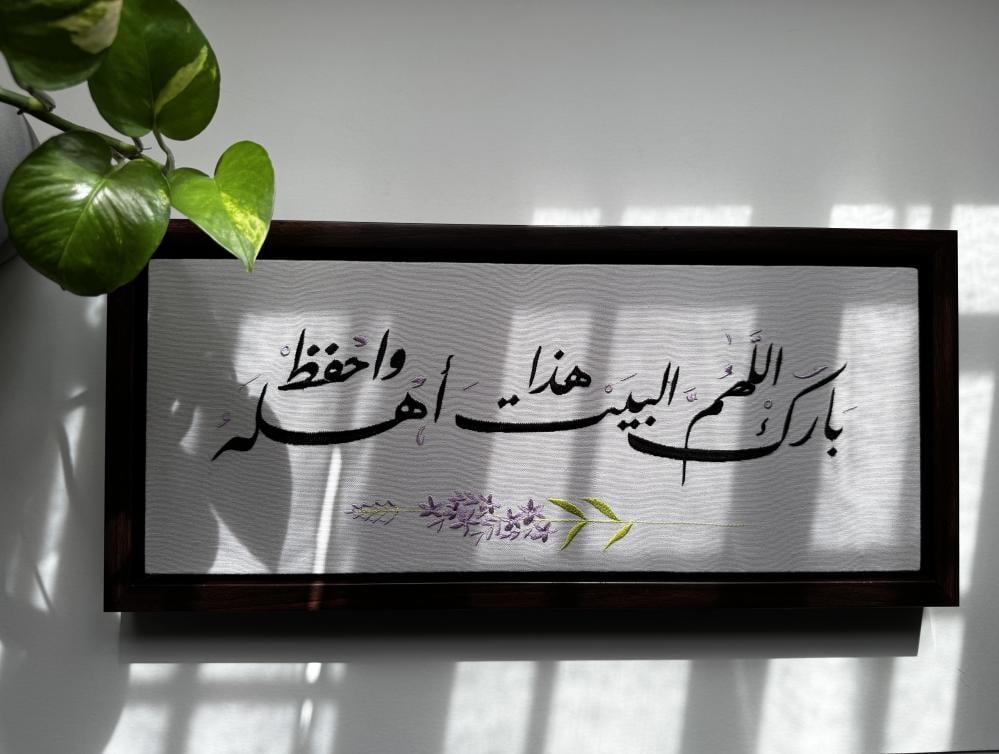 اللّهمّ بارك هذا البيت واحفظ أهله